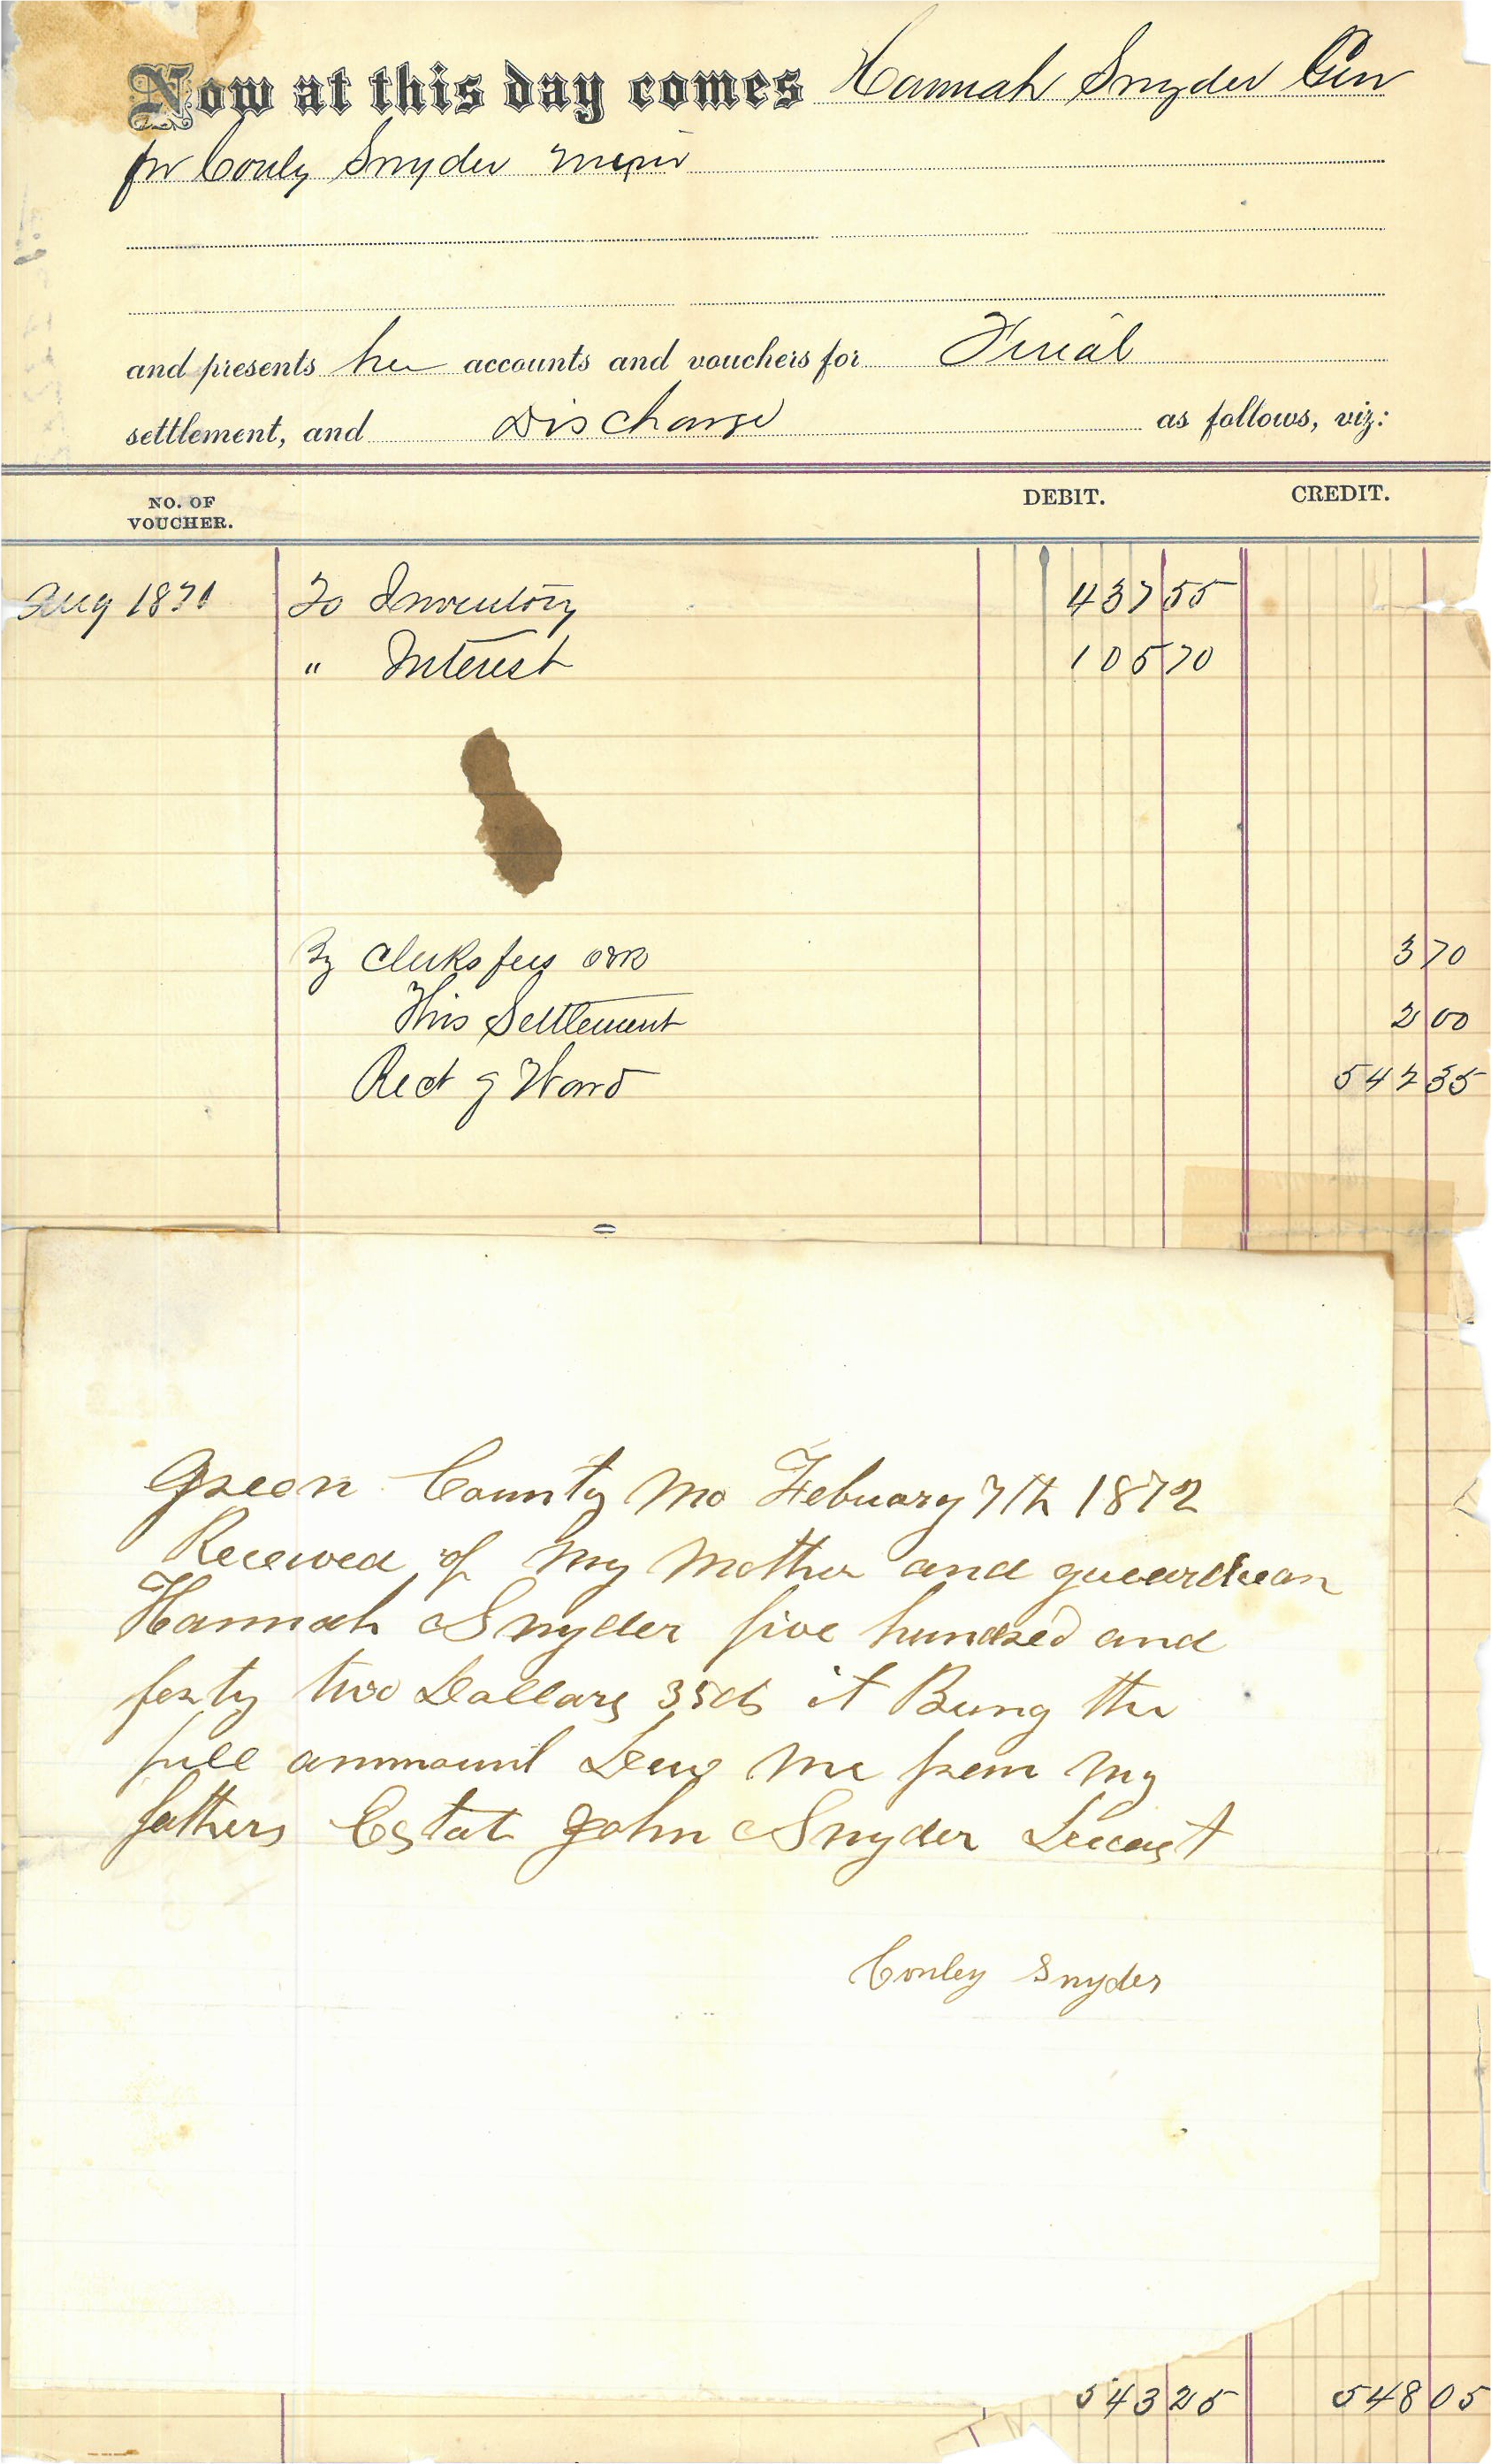 Now at this day comes Hannah Snyder Gin
for Conly Snyder minor
and presents her accounts and vouchers for Final
settlement, and Discharge as follows, viz:
NO. OF VOUCHER. DEBIT. CREDIT.
Aug 1871 To Inventory 437 55
" Interest 105 70
By Clerks fees 3 70
This Settlement 2 00
Rect of Ward 542 35
Green County Mo Febuary 7th 1872
Received of my Mother and guearduean
Hannah Snyder five hundred and
forty two Dollars 35cts it Bung the
full ammount Deu Me from My
fathers Estat John Snyder Deceast
Conley Snyder
543 25 548 05